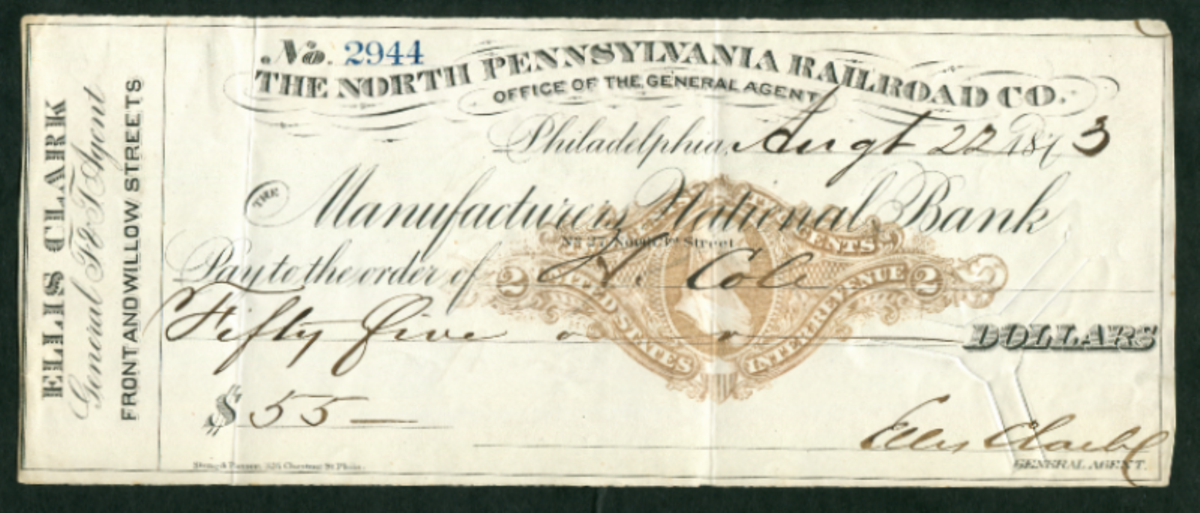 ELLIS CLARK
General Ft. Agent
FRONT AND WILLOW STREETS
No. 2944
THE NORTH PENNSYLVANIA RAILROAD CO.
OFFICE OF THE GENERAL AGENT
Philadelphia, Augt 22 1873
THE Manufacturers National Bank
No 27 North Street
CENTS
Pay to the order of H. Cole
2 UNITED STATES INTER. REVENUE 2
Fifty five DOLLARS
$ 55 —
Ellis Clark
GENERAL AGENT.